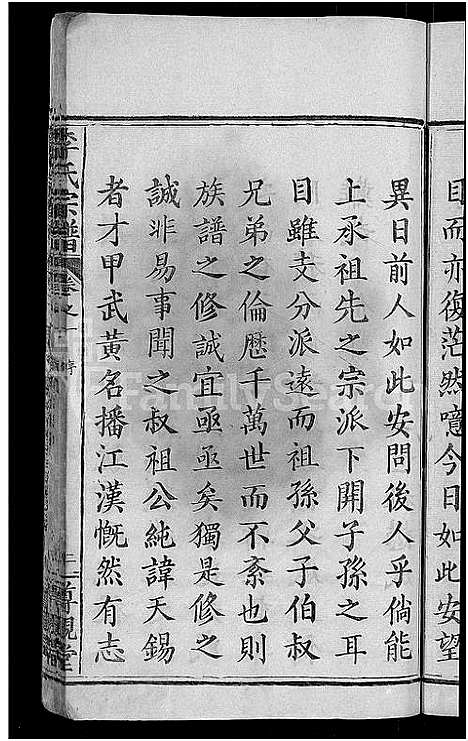 目而亦復茫然噫今日如此安望
異日前人如此安問後人乎倘能
上承祖先之宗派下開子孫之耳
目雖支分派遠而祖孫父子伯叔
兄弟之倫歷千萬世而不紊也則
族譜之修誠宜亟亟矣獨是修之
誠非易事聞之叔祖公純諱天錫
者才甲武黃名播江漢慨然有志
李氏宗譜 卷之一 序 二 尊親堂
FamilySearch